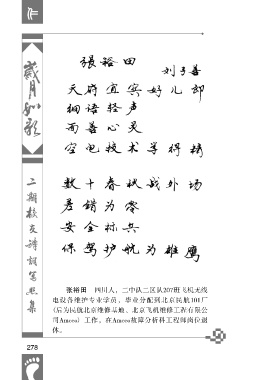 作
岁月如歌
二期校友诗词写照集
张裕田
刘子善
天府宜宾好儿郎
细语轻声
而善心灵
空电技术学得精
数十春秋战外场
差错为零
安全标兵
保驾护航为雄鹰
张裕田　四川人，二中队二区队207班飞机无线
电设备维护专业学员，毕业分配到北京民航101厂
（后为民航北京维修基地、北京飞机维修工程有限公
司Ameco）工作，在Ameco故障分析科工程师岗位退
休。
278